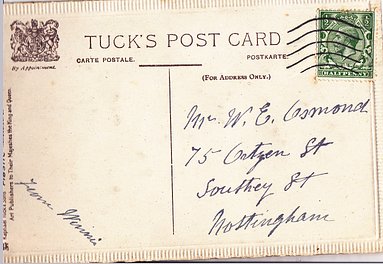 By Appointment.
TUCK'S POST CARD
CARTE POSTALE.
POSTKARTE.
(FOR ADDRESS ONLY.)
HALFPENNY
Mr W. E. Osmond
75 St
Southey St
Nottingham
from Winnie
Art Publishers to Their Majesties the King and Queen.